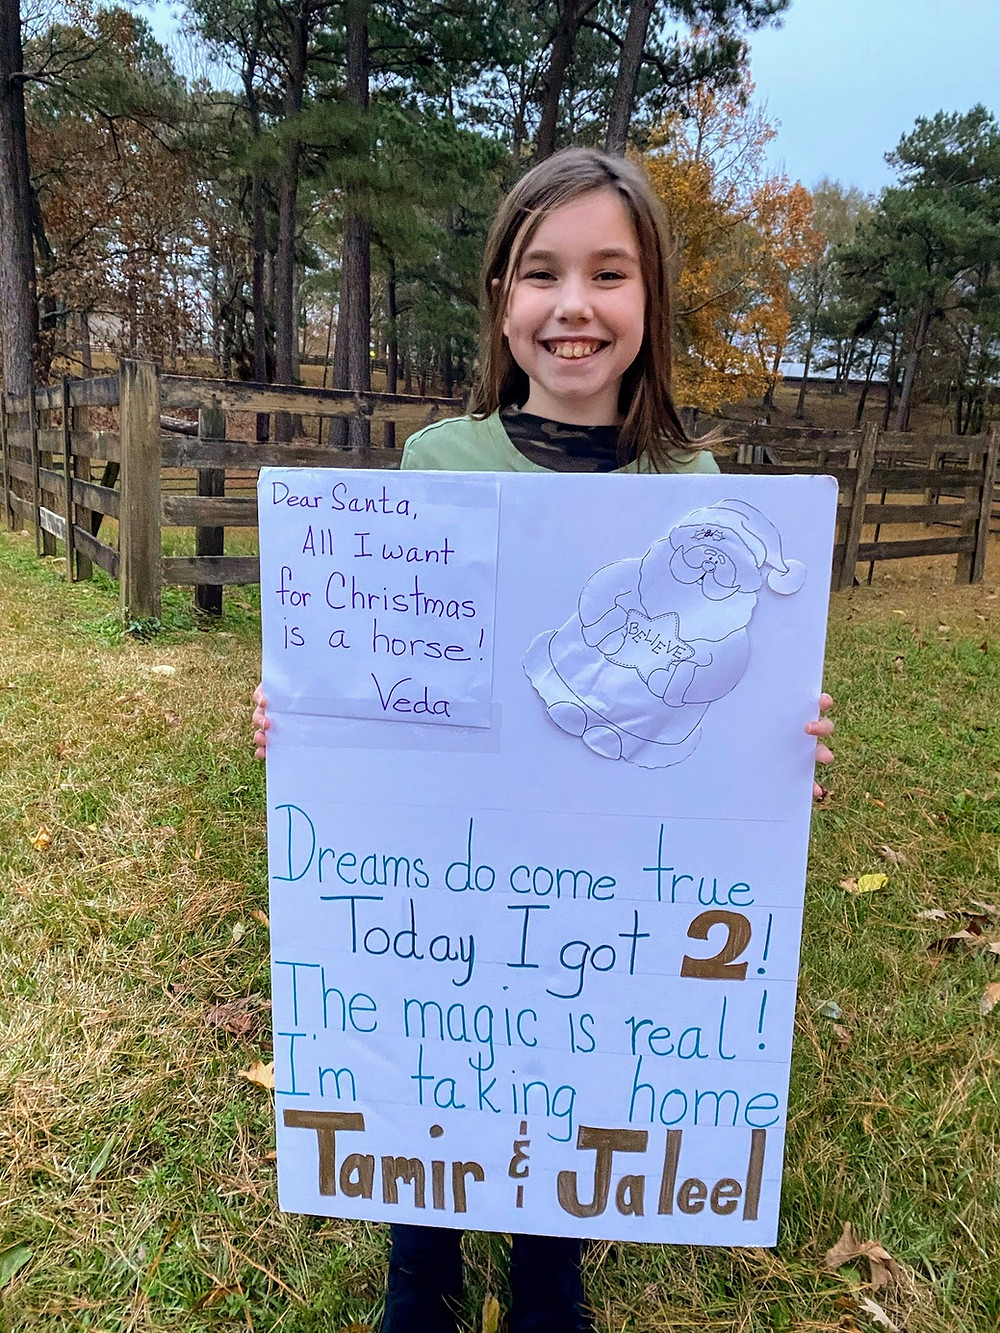 Dear Santa,
All I want
for Christmas
is a horse!
Veda
BELIEVE
Dreams do come true
Today I got 2!
The magic is real!
I'm taking home
Tamir & Jaleel